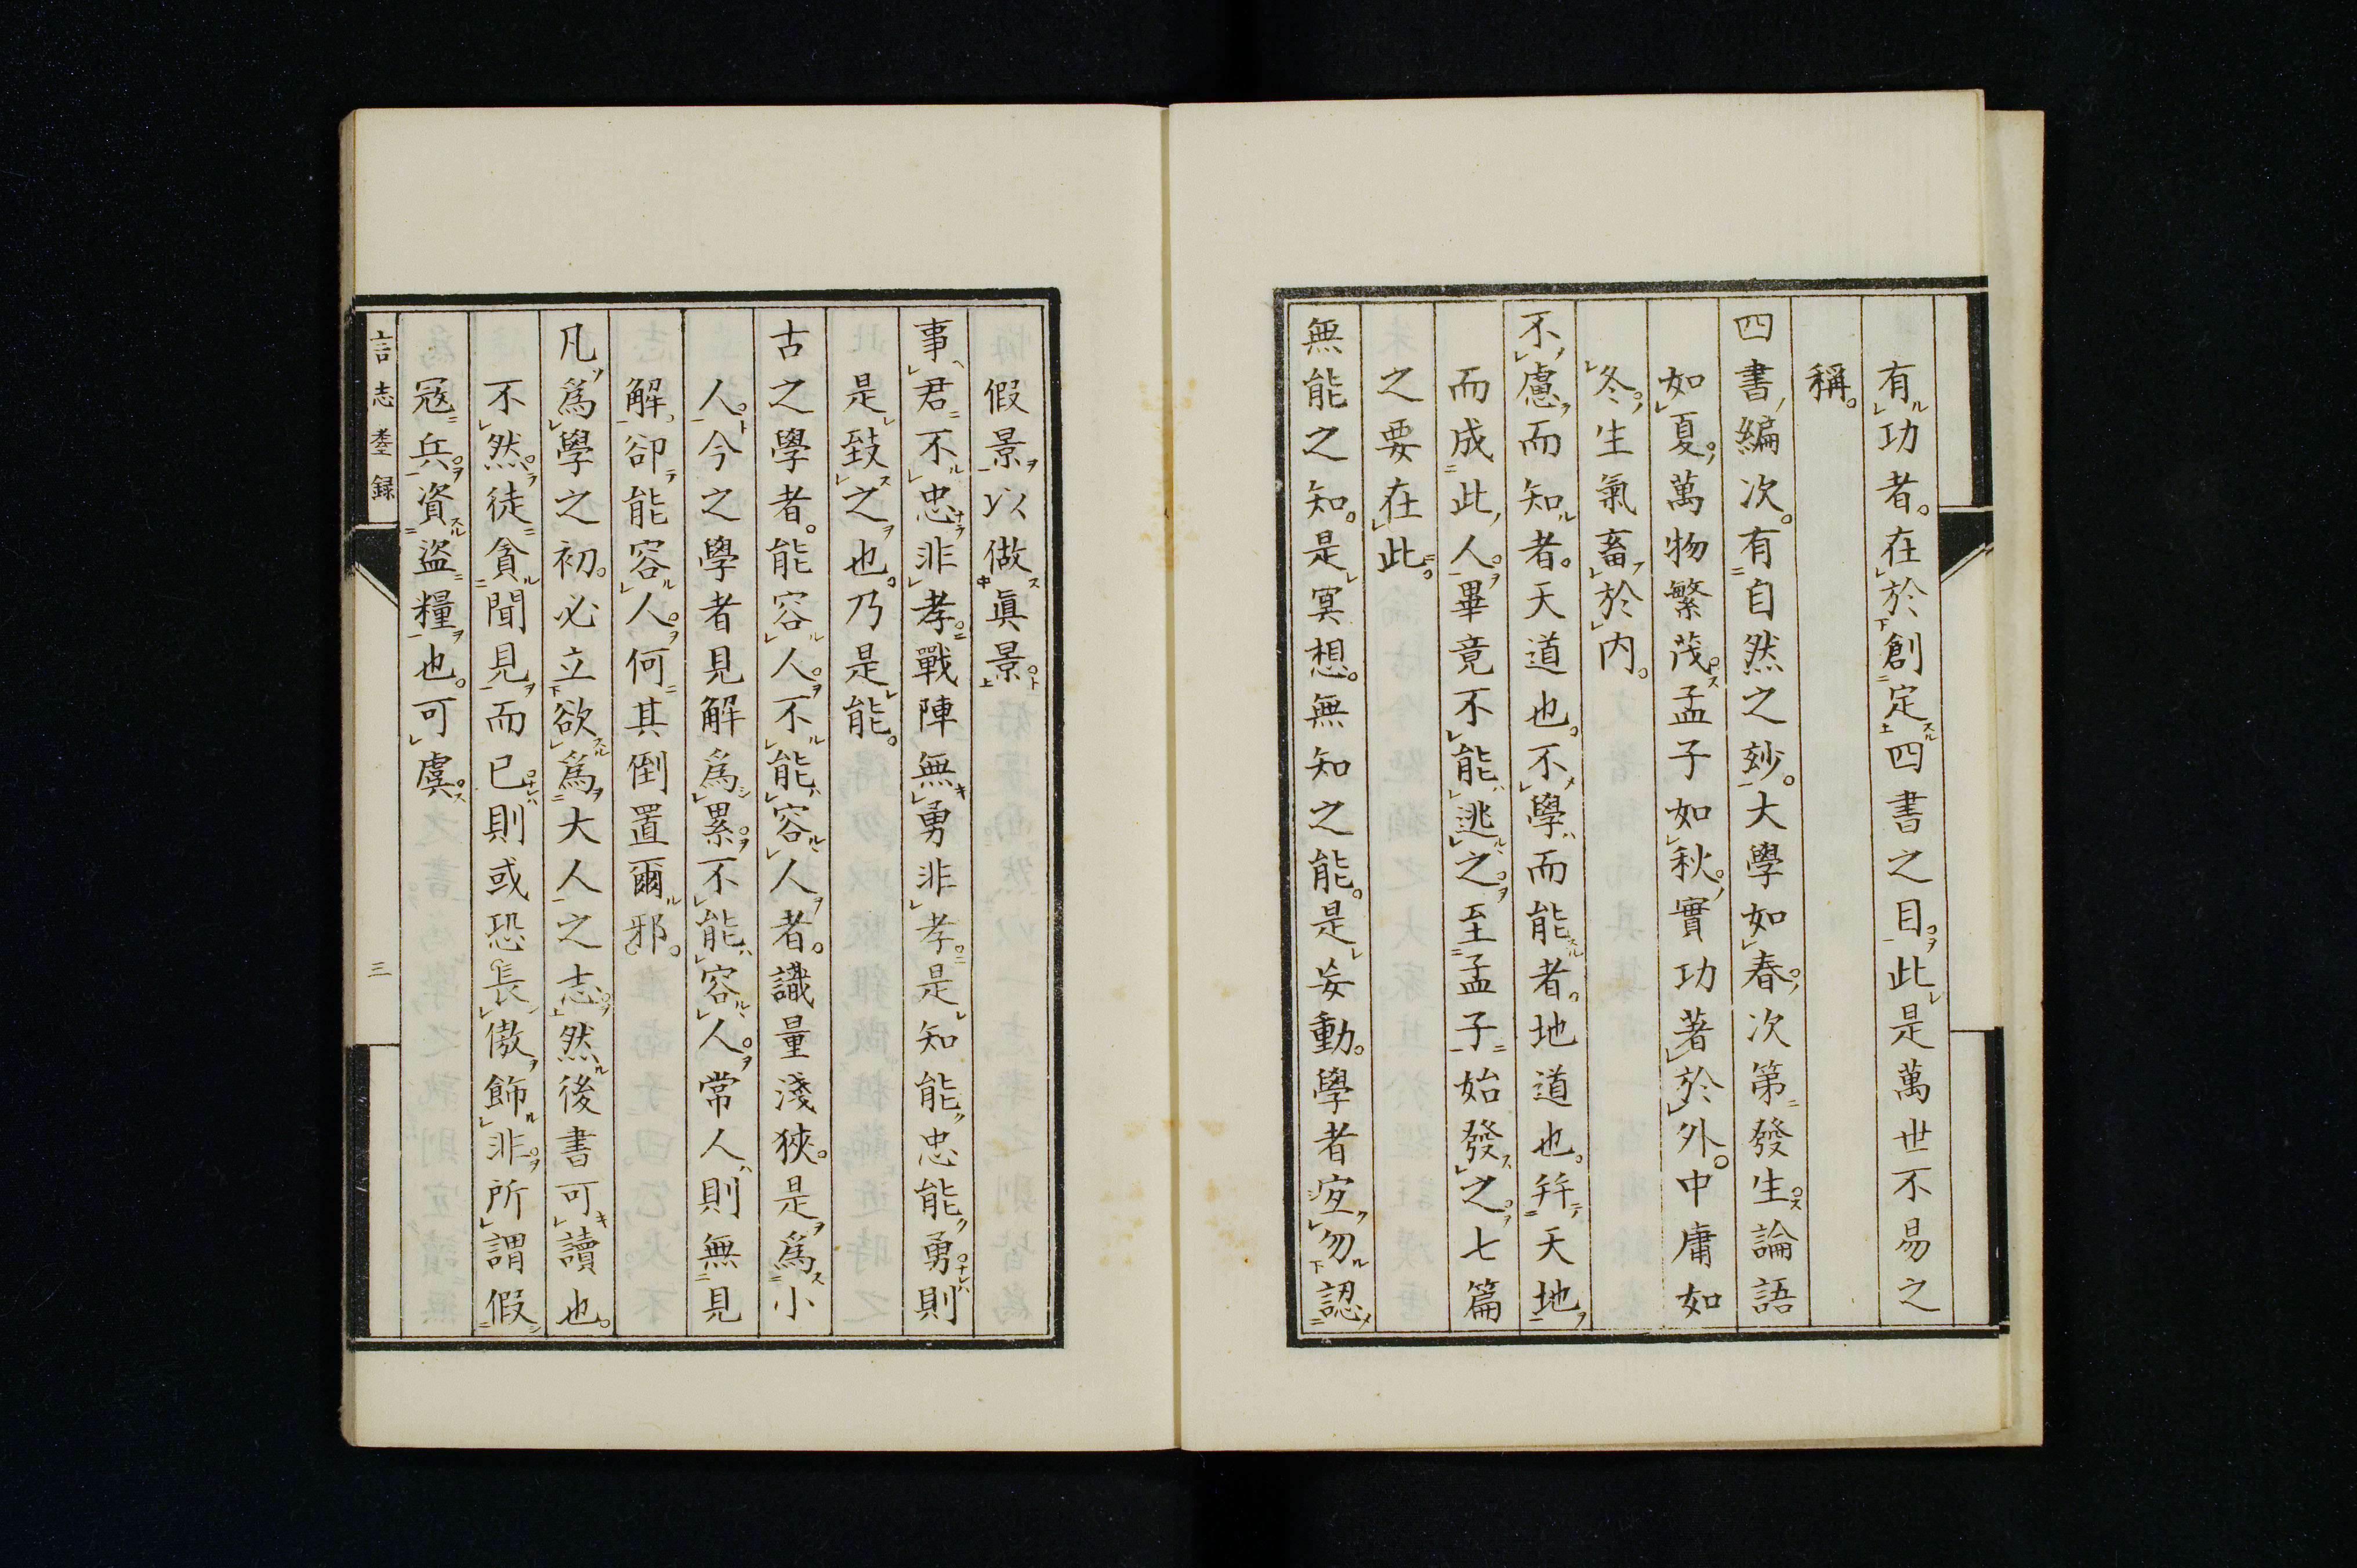 有功者。在於創定四書之目。此是萬世不易之
稱。
四書編次。有自然之玅。大學如春。次第發生。論語
如夏。萬物繁茂。孟子如秋。實功著於外。中庸如
冬。生氣畜於内。
不慮而知者。天道也。不學而能者。地道也。幷天地
而成此人。畢竟不能逃之。至孟子始發之。七篇
之要在此。
無能之知。是冥想。無知之能。是妄動。學者宜勿認
假景以做眞景。
事君不忠非孝。戰陣無勇非孝。是知能。忠能勇。則
是致之也。乃是能。
古之學者。能容人。不能容人者。識量淺狹。是爲小
人。今之學者見解爲累。不能容人。常人則無見
解。卻能容人。何其倒置爾邪。
凡爲學之初。必立欲爲大人之志。然後書可讀也。
不然。徒貪聞見而已。則或恐長傲飾非。所謂假
寇兵。資盜糧也。可虞。
言志耋録
三